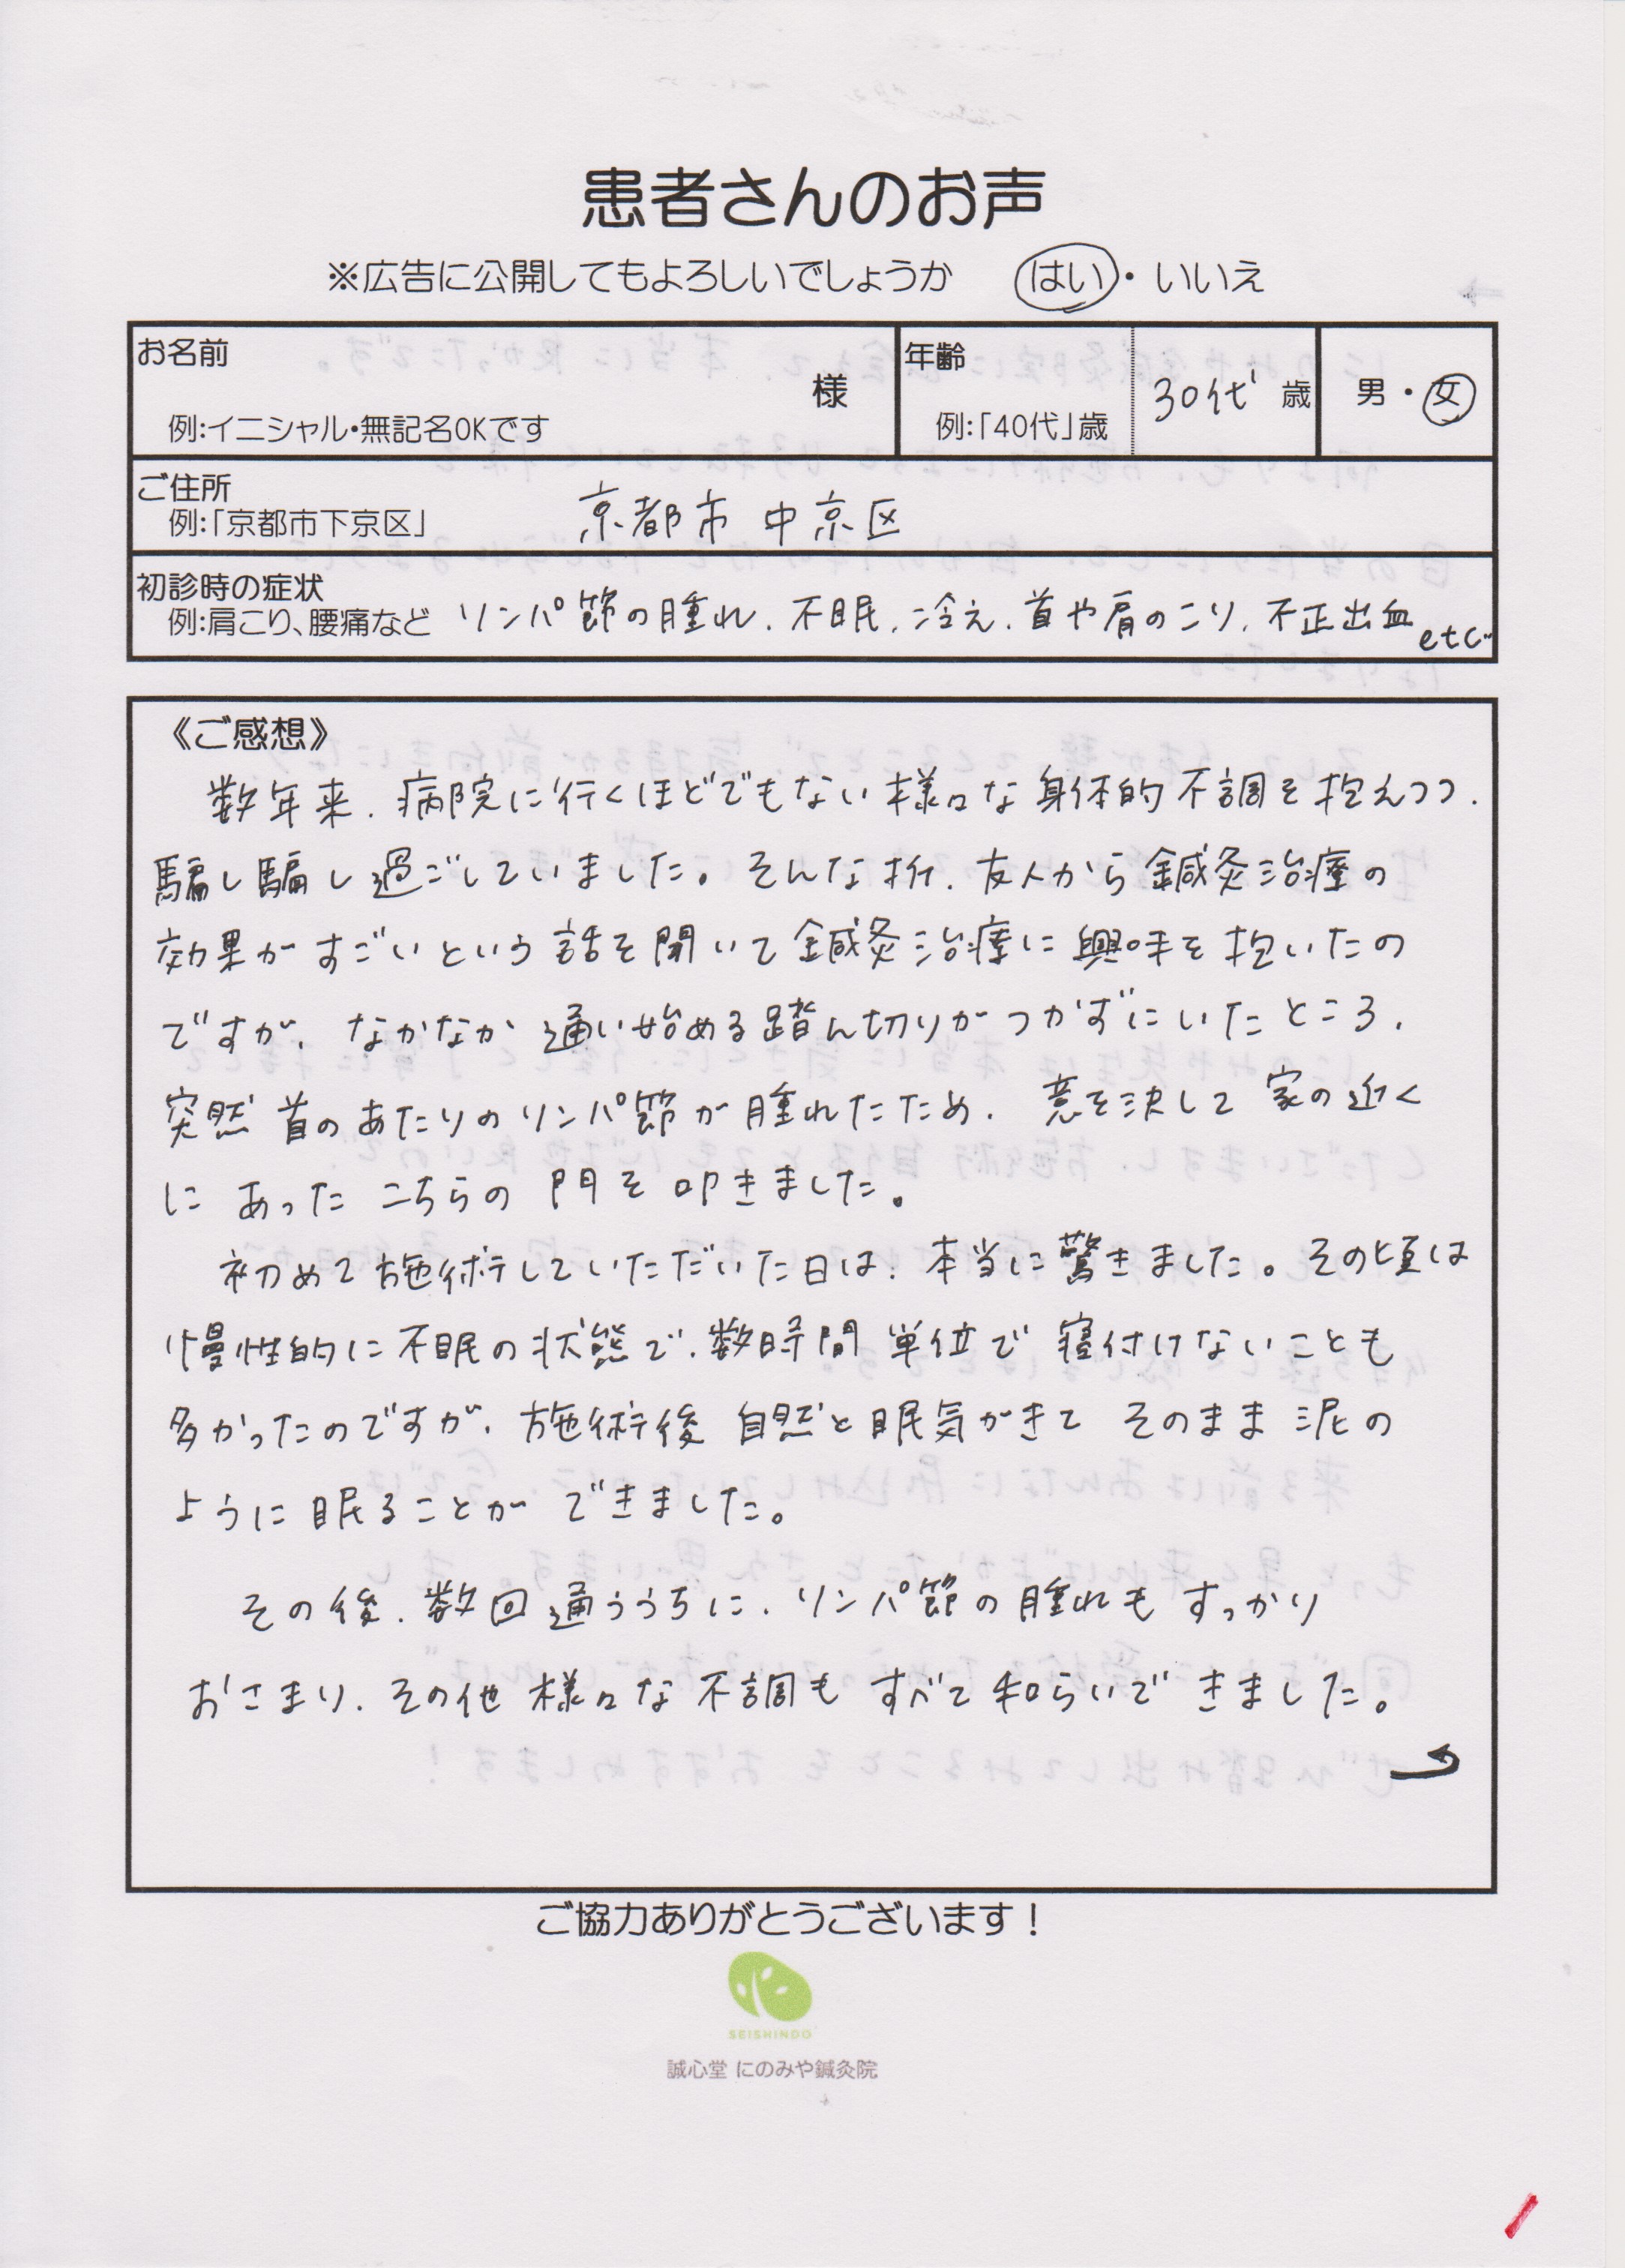 患者さんのお声
※広告に公開してもよろしいでしょうか　はい・いいえ
お名前
様
例:イニシャル・無記名OKです
年齢
例:「40代」歳
30代 歳
男・女
ご住所
例:「京都市下京区」
京都市 中京区
初診時の症状
例:肩こり、腰痛など
リンパ節の腫れ、不眠、冷え、首や肩のこり、不正出血 etc…
《ご感想》
数年来、病院に行くほどでもない様々な身体的不調を抱えつつ、
騙し騙し過ごしていました。そんな折、友人から鍼灸治療の
効果がすごいという話を聞いて鍼灸治療に興味を抱いたの
ですが、なかなか通い始める踏ん切りがつかずにいたところ、
突然首のあたりのリンパ節が腫れたため、意を決して家の近く
にあったこちらの門を叩きました。
初めて施術していただいた日は、本当に驚きました。その頃は
慢性的に不眠の状態で、数時間単位で寝付けないことも
多かったのですが、施術後自然と眠気がきてそのまま泥の
ように眠ることができました。
その後、数回通ううちに、リンパ節の腫れもすっかり
おさまり、その他様々な不調もすべて和らいできました。
ご協力ありがとうございます！
SEISHINDO
誠心堂 にのみや鍼灸院